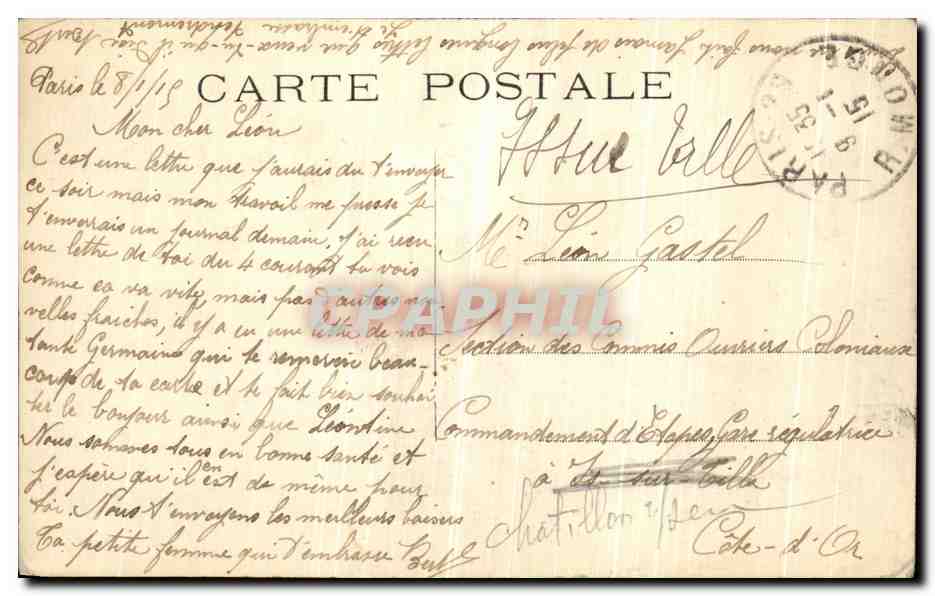 Paris le 8/1/15
CARTE POSTALE
Mon cher Léon
C'est une lettre que j'aurais du t'envoyer
ce soir mais mon travail me presse je
t'enverrais un journal demain, j'ai reçu
une lettre de toi du 4 courant tu vois
comme ca va vite, mais pas d'autres nou
velles fraiches, il y a eu une lettre de ma
tante Germaine qui te remercie beau-
coup de ta carte et te fait bien souhai
ter le bonjour ainsi que Léontine
Nous sommes tous en bonne santé et
j'espère qu'il en est de même pour
toi. Nous t'envoyons les meilleurs baisers
Ta petite femme qui t'embrasse
Is sur Tille
Mr Léon Gastel
Section des Commis Ouvriers Coloniaux
Commandement d'Etapes Gare régulatrice
à Is-sur-Tille
Chatillon s/Seine
Côte-d'Or
nous fait jamais de plus longues lettres que
Je t'embrasse tendrement
PARIS
CPAPHIL